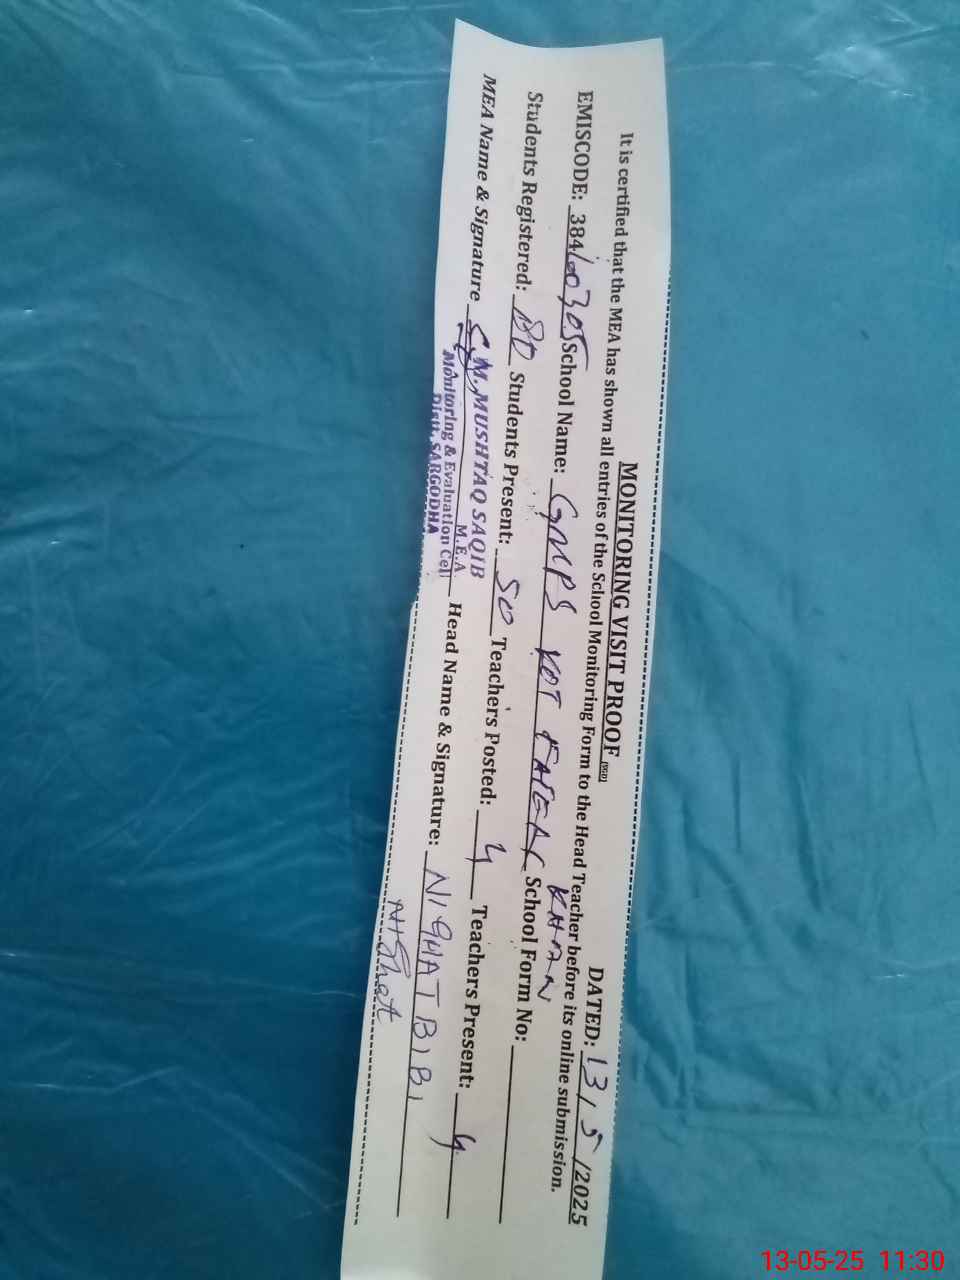 MONITORING VISIT PROOF (SGD)
DATED: 13/5/2025
It is certified that the MEA has shown all entries of the School Monitoring Form to the Head Teacher before its online submission.
EMISCODE: 384100305 School Name: GMPS KOT KHAN School Form No:
Students Registered: 80 Students Present: 50 Teachers Posted: 4 Teachers Present: 4
MEA Name & Signature Head Name & Signature: NIGHAT BIBI
M. MUSHTAQ SAQIB
M.E.A
Monitoring & Evaluation Cell
Distt. SARGODHA
Nighat
13-05-25 11:30